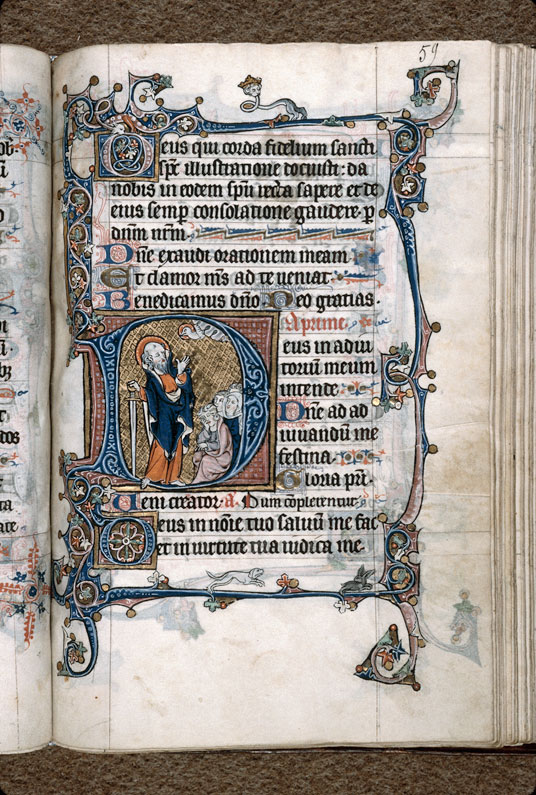 59
Deus qui corda fidelium sancti
sps illustratione docuisti: da
nobis in eodem spu recta sapere et de
eius semp consolatione gaudere. p
dnm nrm.
Dne exaudi orationem meam
Et clamor ms ad te veniat.
Benedicamus dno. Deo gratias.
A prime.
Deus in adiu
torium meum
intende.
Dne ad ad
iuvandum me
festina.
Gloria pri.
Veni creator. a. Dum complerentur.
Deus in noie tuo salvum me fac
et in virtute tua iudica me.